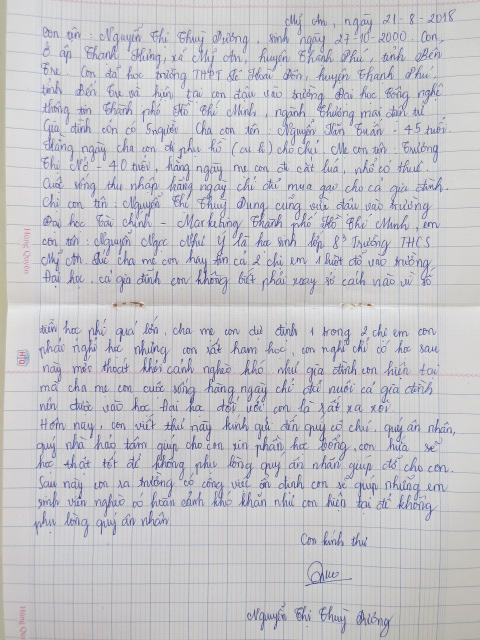 Mỹ An, ngày 21-8-2018
Con tên: Nguyễn Thị Thuỳ Dương, sinh ngày 27-10-2000. Con,
ở ấp Thạnh Hưng, xã Mỹ An, huyện Thạnh Phú, tỉnh Bến
Tre. Con đã học trường THPT Lê Hoài Đôn, huyện Thạnh Phú,
tỉnh Bến Tre và hiện tại con đậu vào trường Đại học Công nghệ
thông tin Thành phố Hồ Chí Minh, ngành Thương mại điện tử
Gia đình con có 5 người: Cha con tên: Nguyễn Tấn Tuấn - 45 tuổi.
Hằng ngày cha con đi phụ hồ cho chủ. Mẹ con tên: Trương
Thị Nô - 40 tuổi, hằng ngày mẹ con đi cắt lúa, nhổ cỏ thuê
Cuộc sống thu nhập hằng ngày chỉ đủ mua gạo cho cả gia đình.
Chị con tên: Nguyễn Thị Thuỳ Dung cũng vừa đậu vào trường
Đại học Tài chính - Marketing Thành phố Hồ Chí Minh, em
con tên: Nguyễn Ngọc Như Ý là học sinh lớp 8³ Trường THCS
Mỹ An. Lúc cha mẹ con hay tin cả 2 chị em 1 lượt đỗ vào trường
Đại học, cả gia đình con không biết phải xoay sở cách nào vì số
tiền học phí quá lớn, cha mẹ con dự định 1 trong 2 chị em con
phải nghỉ học nhưng con rất ham học, con nghĩ chỉ có học sau
này mới thoát khỏi cảnh nghèo khó như gia đình con hiện tại
mà cha mẹ con cuộc sống hằng ngày chỉ đủ nuôi cả gia đình
nên được vào học Đại học đối với con là rất xa xôi
Hôm nay, con viết thư này kính gửi đến quý cô chú, quý ân nhân,
quý nhà hảo tâm giúp cho con xin phần học bổng, con hứa sẽ
học thật tốt để không phụ lòng quý ân nhân giúp đỡ cho con.
Sau này con ra trường có công việc ổn định con sẽ giúp những em
sinh viên nghèo có hoàn cảnh khó khăn như con hiện tại để không
phụ lòng quý ân nhân
Con kính thư
Nguyễn Thị Thuỳ Dương
Hùng Quyên
HQ
Hùng Quyên